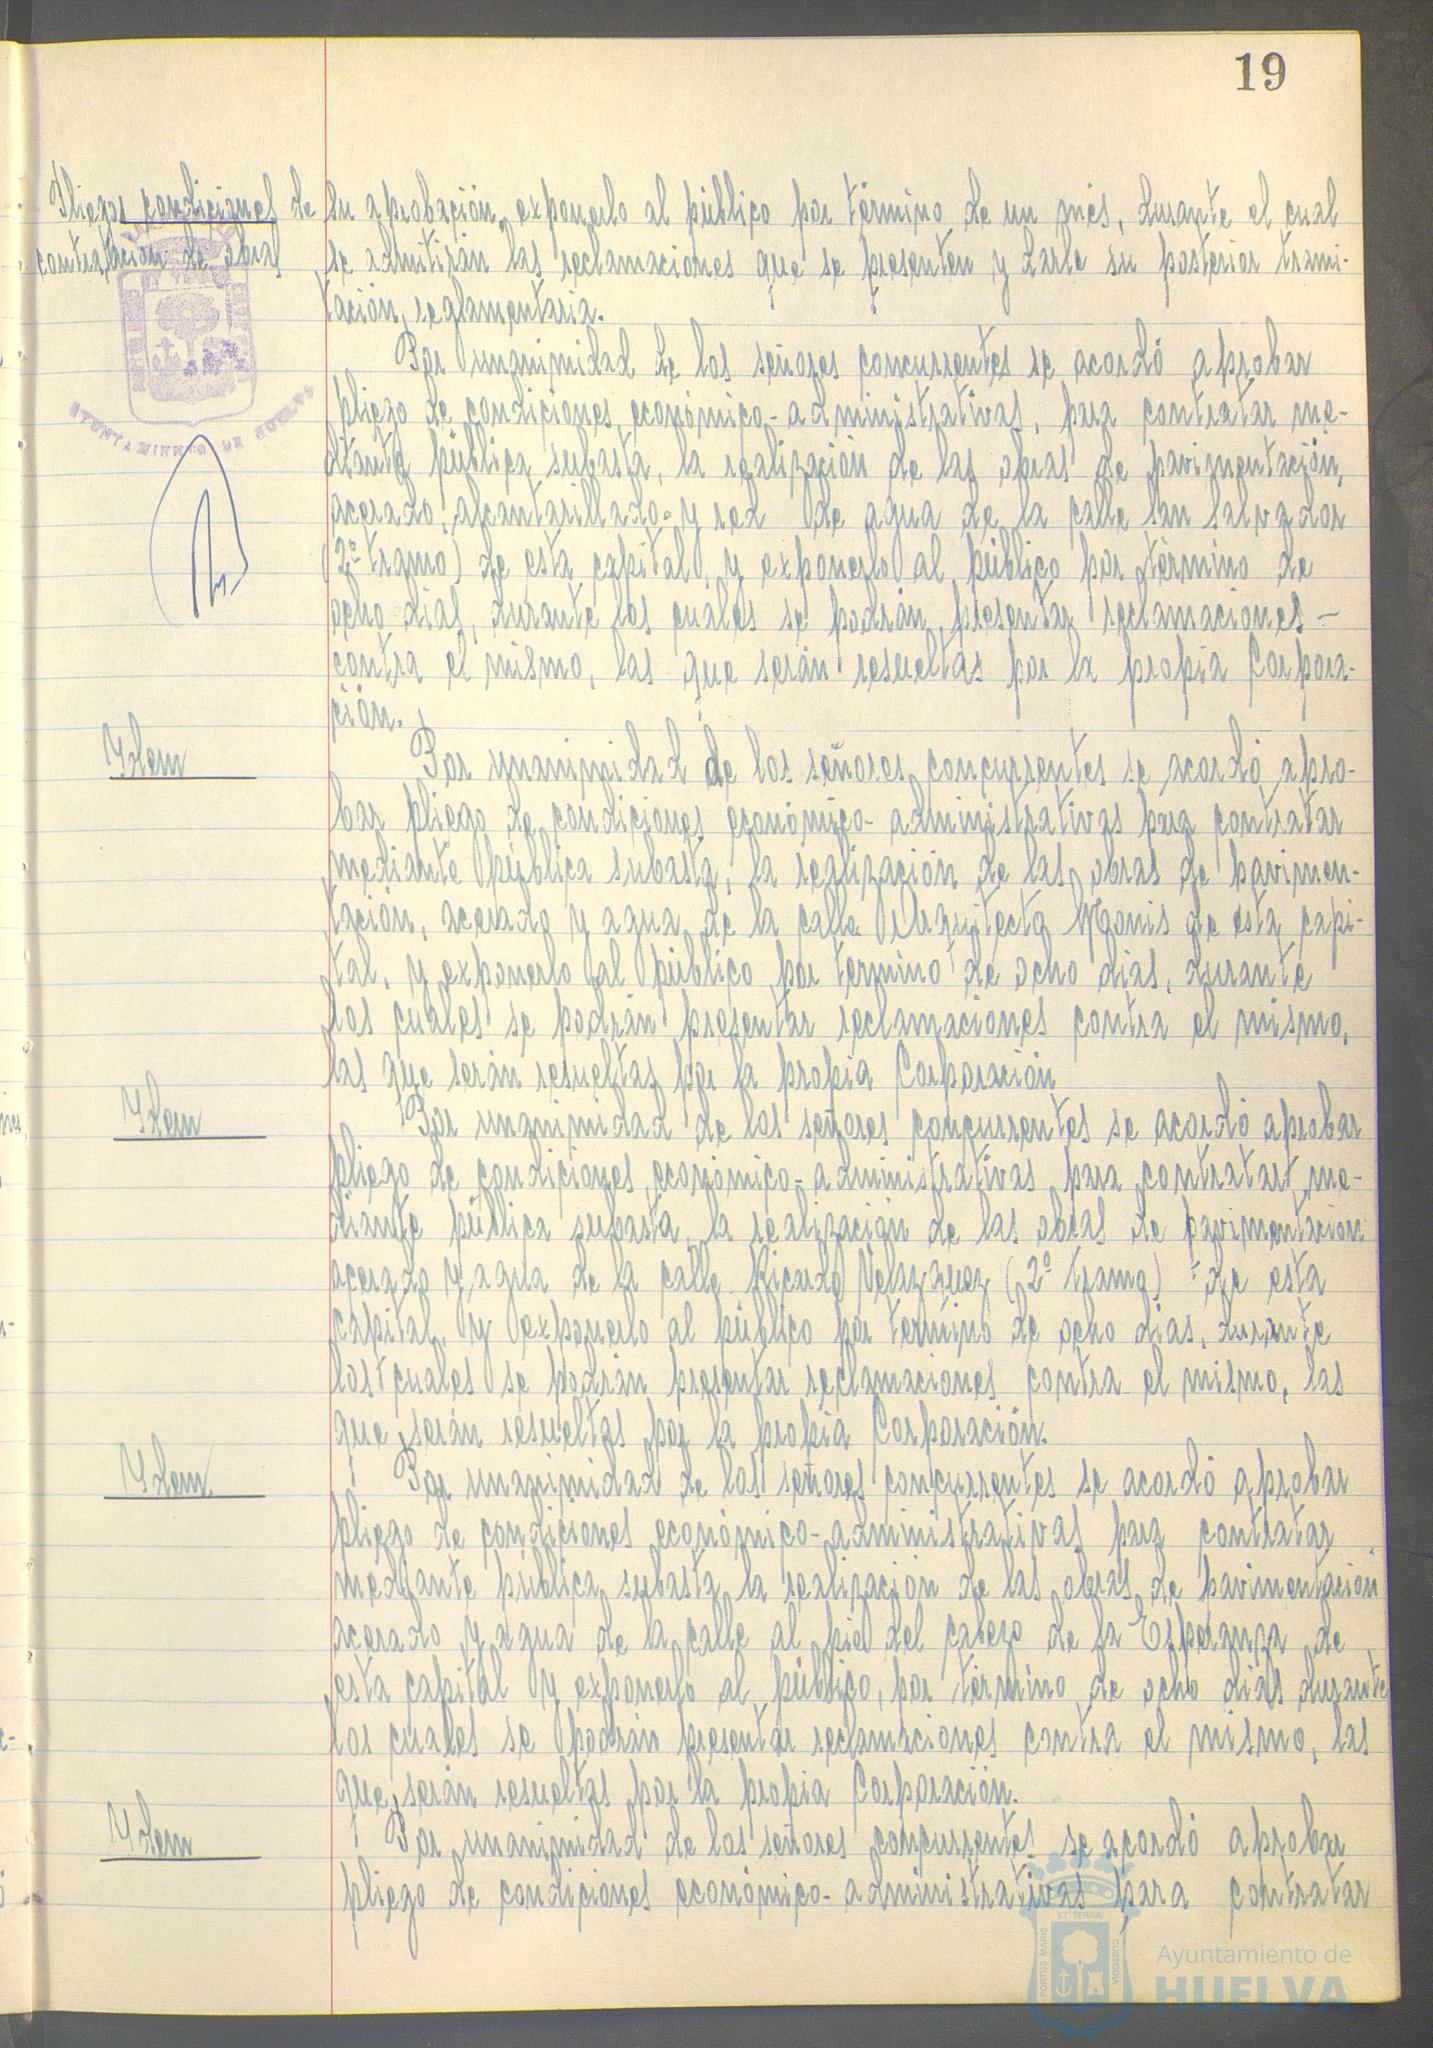 19
Pliegos condiciones de
contratación de obras
su aprobación, exponerlo al público por término de un més, durante el cual
se admitirán las reclamaciones que se presenten y darle su posterior trami-
tación reglamentaria.
AYUNTAMIENTO DE HUELVA
Por unanimidad de los señores concurrentes se acordó aprobar
pliego de condiciones económico-administrativas, para contratar me-
diante pública subasta, la realización de las obras de pavimentación,
acerado, alcantarillado y red de agua de la calle San Salvador
(2º tramo) de esta capital, y exponerlo al público por término de
ocho días, durante los cuáles se podrán presentar reclamaciones -
contra el mismo, las que serán resueltas por la propia Corpora-
ción.
Ydem
Por unanimidad de los señores concurrentes se acordó apro-
bar pliego de condiciones económico-administrativas para contratar
mediante pública subasta, la realización de las obras de pavimen-
tación, acerado y agua de la calle Arquitecto Monis de esta capi-
tal, y exponerlo al público por término de ocho días, durante
los cuales se podrán presentar reclamaciones contra el mismo,
las que serán resueltas por la propia Corporación
Ydem
Por unanimidad de los señores concurrentes se acordó aprobar
pliego de condiciones económico-administrativas para contratar me-
diante pública subasta, la realización de las obras de pavimentación
acerado y agua de la calle Ricardo Velazquez (2º tramo) de esta
capital, y exponerlo al público por término de ocho días, durante
los cuales se podrán presentar reclamaciones contra el mismo, las
que serán resueltas por la propia Corporación.
Ydem
Por unanimidad de los señores concurrentes se acordó aprobar
pliego de condiciones económico-administrativas para contratar
mediante pública subasta la realización de las obras de pavimentación
acerado y agua de la calle al pie del cabezo de la Esperanza de
esta capital y exponerlo al público, por término de ocho días durante
los cuales se podrán presentar reclamaciones contra el mismo, las
que serán resueltas por la propia Corporación.
Ydem
Por unanimidad de los señores concurrentes se acordó aprobar
pliego de condiciones económico-administrativas para contratar
ET TERRÆ
PORTUS MARIS
CUSTODIA
Ayuntamiento de
HUELVA